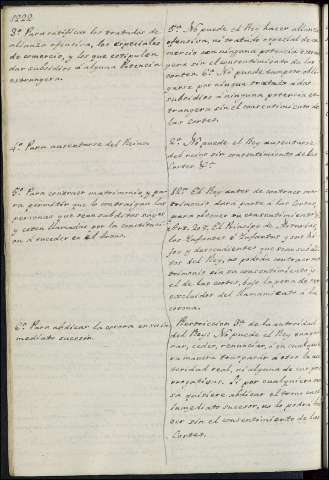 1222
3º Para ratificar los tratados de
alianza ofensiva, los especiales
de comercio, y los que estipulen
dar subsidios á alguna Potencia
extrangera.
4º Para ausentarse del Reino
5º Para contraer matrimonio y pa-
ra permitir que lo contraigan las
personas que sean subditos suyos
y esten llamadas por la constitucion
á suceder en el trono.
6º Para abdicar la corona en su in-
mediato sucesor.
5ª No puede el Rey hacer alianza
ofensiva, ni tratado especial de co-
mercio con ninguna potencia extran-
gera sin el consentimiento de las
Cortes. 6ª No puede tampoco obli-
garse por ningun tratado á dar
subsidios á ninguna potencia ex-
trangera sin el consentimiento de
las Cortes.
2ª No puede el Rey ausentarse
del reino sin consentimiento de las
Cortes &ª
12ª El Rey antes de contraer ma-
trimonio dará parte á las Cortes,
para obtener su consentimiento &
Art. 208. El Principe de Asturias,
los Infantes é Infantas y sus hi-
jos y descendientes que sean subdi-
tos del Rey, no podrán contraer ma-
trimonio sin su consentimiento y
el de las Cortes, bajo la pena de ser
excluidos del llamamiento á la
corona.
Restriccion 3ª de la autoridad
del Rey: No puede el Rey enage-
nar, ceder, renunciar, ó en cualquie-
ra manera traspasar á otro la au-
toridad real, ni alguna de sus pre-
rrogativas. Si por cualquiera cau-
sa quisiere abdicar el trono en el
inmediato sucesor, no lo podrá ha-
cer sin el consentimiento de las
Cortes.